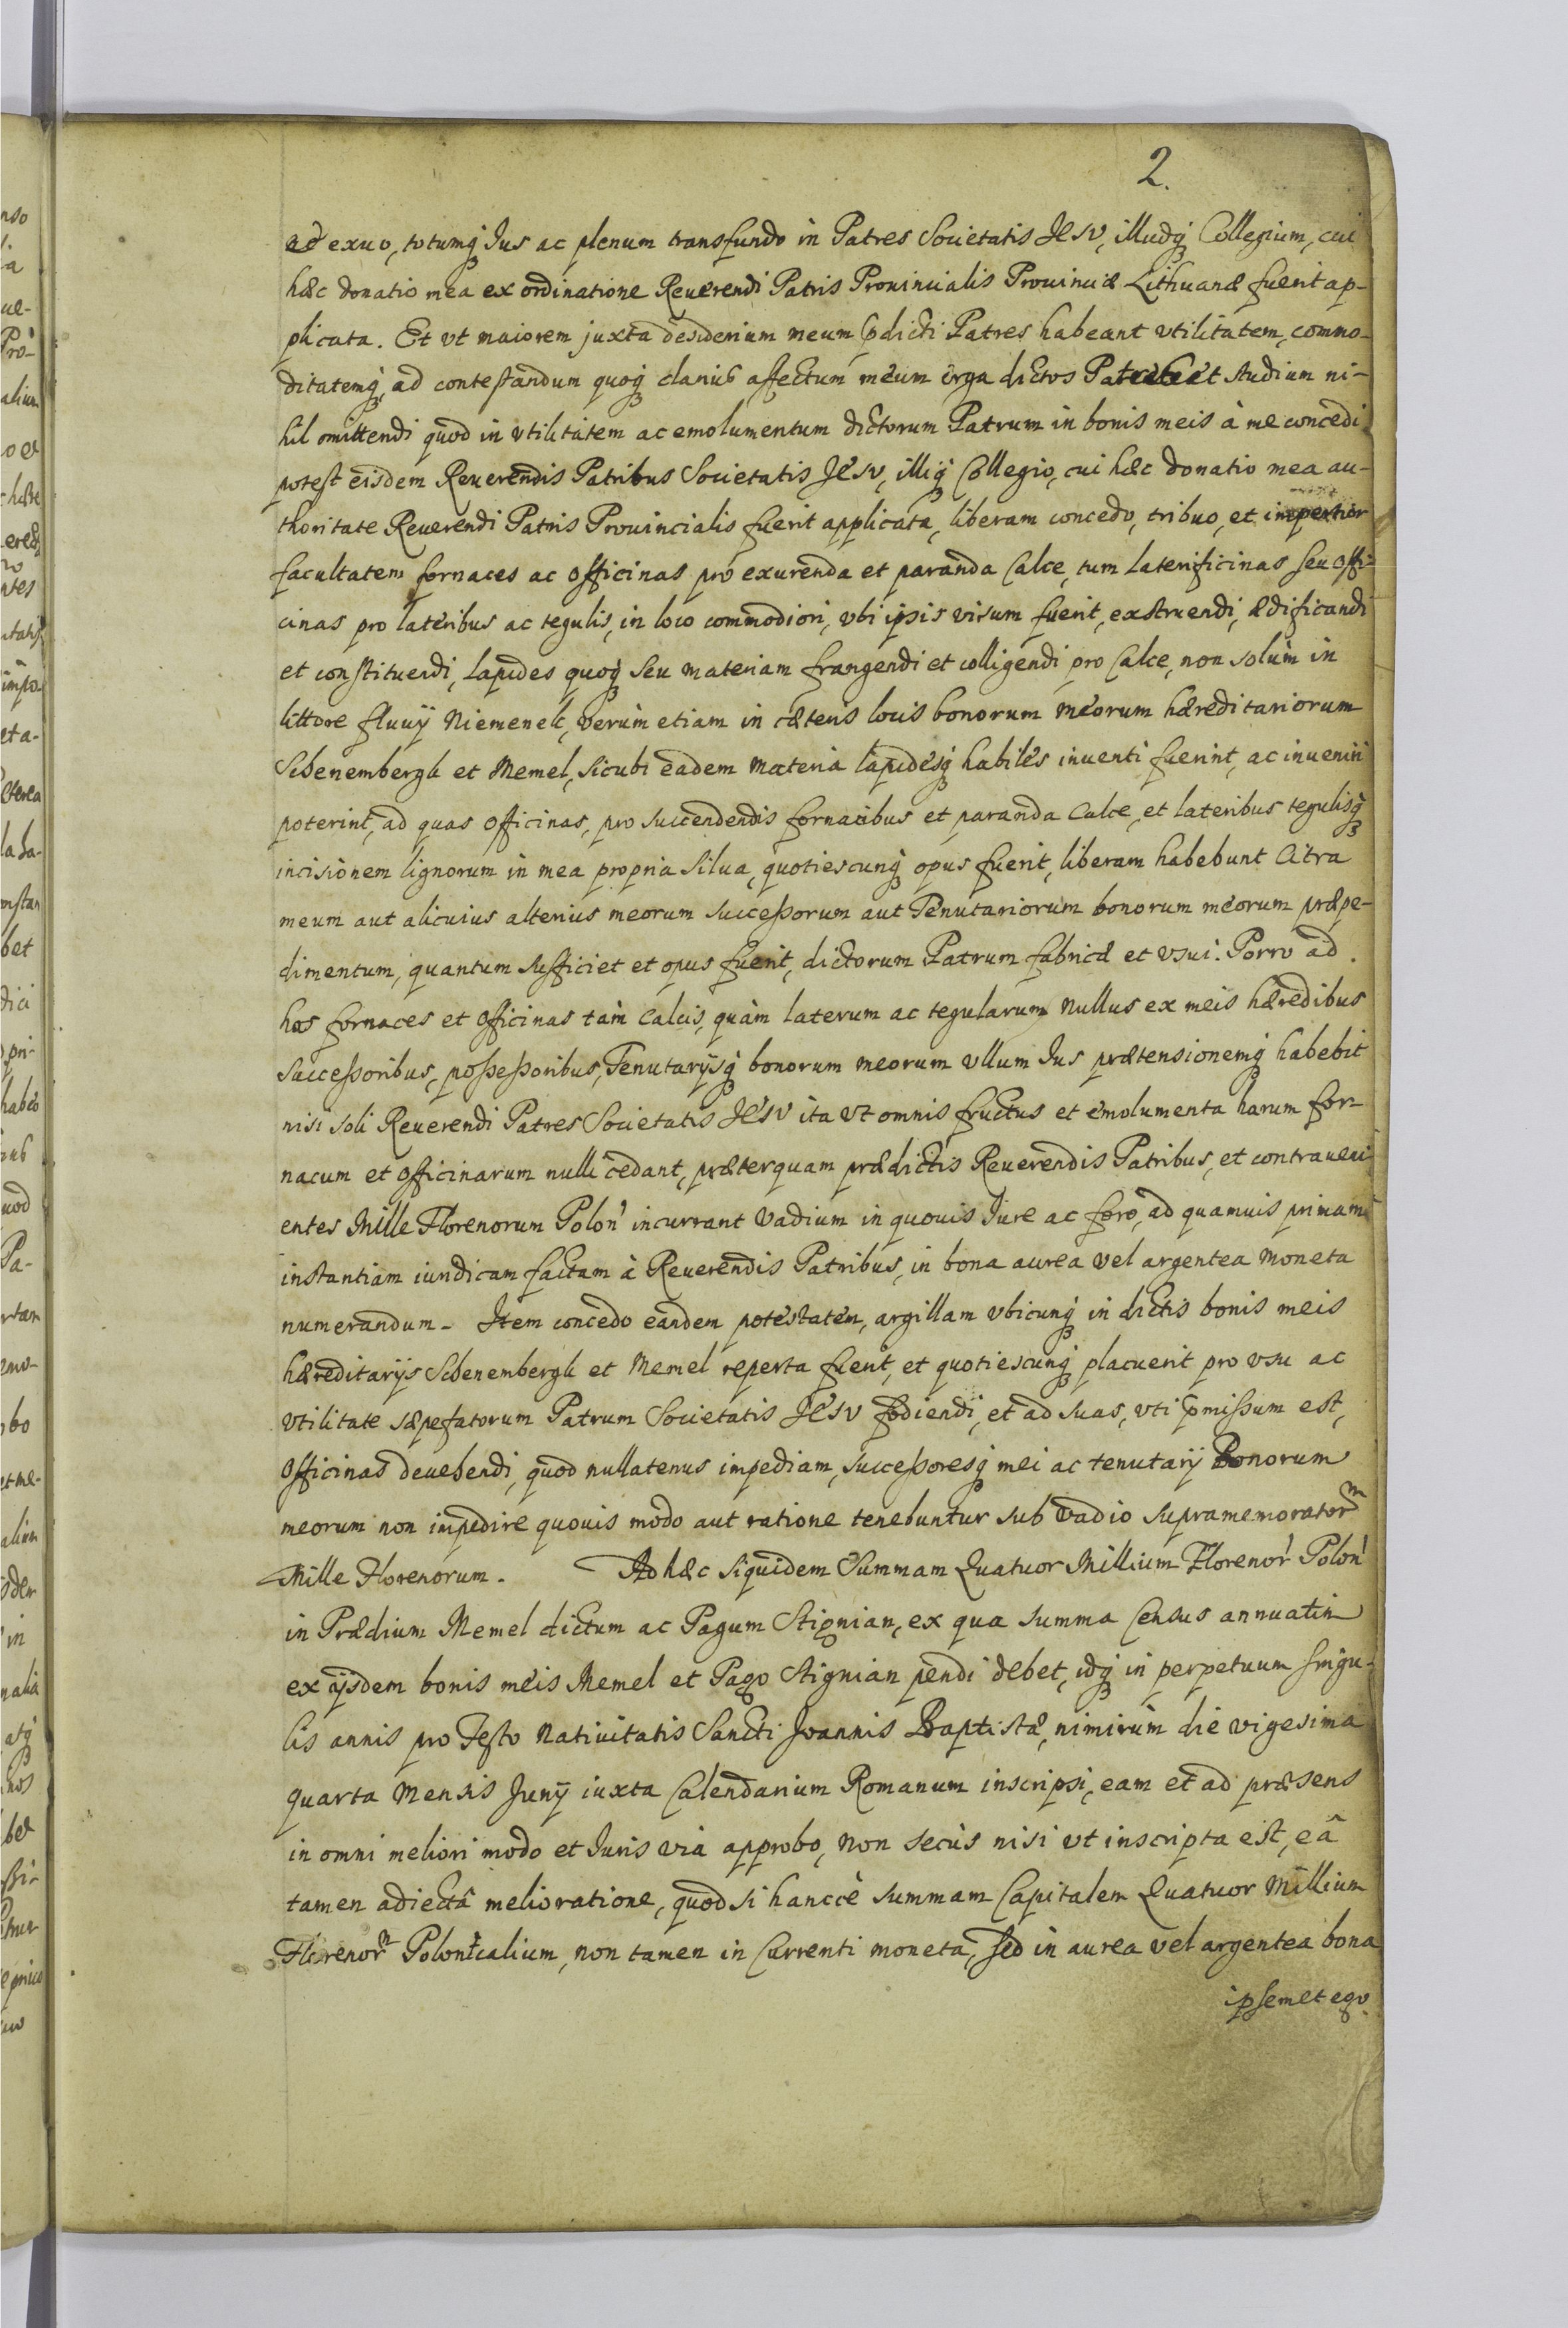 2.
ac exuo, totumq; Jus ac plenum transfundo in Patres Societatis JESV, illudq; Collegium, cui
hæc donatio mea ex ordinatione Reuerendi Patris Prouincialis Prouinciæ Lithuanæ fuerit ap-
plicata. Et vt maiorem juxta desiderium meum p̄dicti Patres habeant vtilitatem, commo-
ditatemq; ad contestandum quoq; clarius affectum meum erga dictos Patres et studium ni-
hil omittendi quod in vtilitatem ac emolumentum dictorum Patrum in bonis meis à me concedi
potest eisdem Reuerendis Patribus Societatis JESV, illiq; Collegio, cui hæc donatio mea au-
thoritate Reuerendi Patris Prouincialis fuerit applicata, liberam concedo, tribuo, et impertior
facultatem fornaces ac officinas pro exurenda et paranda Calce, tum laterificinas seu offi-
cinas pro lateribus ac tegulis, in loco commodiori, vbi ipsis visum fuerit, exstruendi, ædificandi
et constituendi, lapides quoq; seu materiam frangendi et colligendi pro Calce, non solùm in
littore fluuij Niemenek, verùm etiam in cæteris locis bonorum meorum hæreditariorum
Schenembergk et Memel, sicubi eadem materia lapidesq; habiles inuenti fuerint, ac inueniri
poterint, ad quas officinas, pro succendendis fornacibus et paranda Calce, et lateribus tegulisq;
incisionem lignorum in mea propria silua, quotiescunq; opus fuerit, liberam habebunt Citra
meum aut alicuius alterius meorum successorum aut Tenutariorum bonorum meorum præpe-
dimentum, quantum sufficiet et opus fuerit, dictorum Patrum fabricæ et vsui. Porro ad
hos fornaces et officinas tàm Calcis, quàm laterum ac tegularum nullus ex meis hæredibus
successoribus, possessoribus, Tenutarijsq; bonorum meorum vllum Jus prætensionemq; habebit
nisi soli Reuerendi Patres Societatis JESV ita vt omnis fructus et emolumenta harum for-
nacum et officinarum nulli cedant, præterquam prædictis Reuerendis Patribus, et contraueni
entes Mille Florenorum Polon' incurrant vadium in quouis Jure ac foro, ad quamuis primam
instantiam iuridicam factam à Reuerendis Patribus, in bona aurea vel argentea moneta
numerandum. Item concedo eandem potestatem, argillam vbicunq; in dictis bonis meis
hæreditarijs Schenembergk et Memel reperta fuerit, et quotiescunq; placuerit pro vsu ac
vtilitate sæpefatorum Patrum Societatis JESV fodiendi, et ad suas, vti p̄missum est,
officinas deuehendi, quod nullatenus impediam, successoresq; mei ac tenutarij Bonorum
meorum non impedire quouis modo aut ratione tenebuntur sub vadio supramemorator̄m
Mille Florenorum. Ad hæc siquidem Summam Quatuor Millium Florenor' Polon'
in Prædium Memel dictum ac Pagum Stignian, ex qua summa Census annuatim
ex ijsdem bonis meis Memel et Pago Stignian pendi debet, idq; in perpetuum singu-
lis annis pro Festo Natiuitatis Sancti Joannis Baptistæ, nimirùm die vigesima
quarta Mensis Junij iuxta Calendarium Romanum inscripsi, eam et ad præsens
in omni meliori modo et Juris via approbo, non secùs nisi vt inscripta est, eâ
tamen adiectâ melioratione, quod si hanccè summam Capitalem Quatuor Millium
Florenor̄m Polonicalium, non tamen in Currenti moneta, sed in aurea vel argentea bona
ipsemet ego